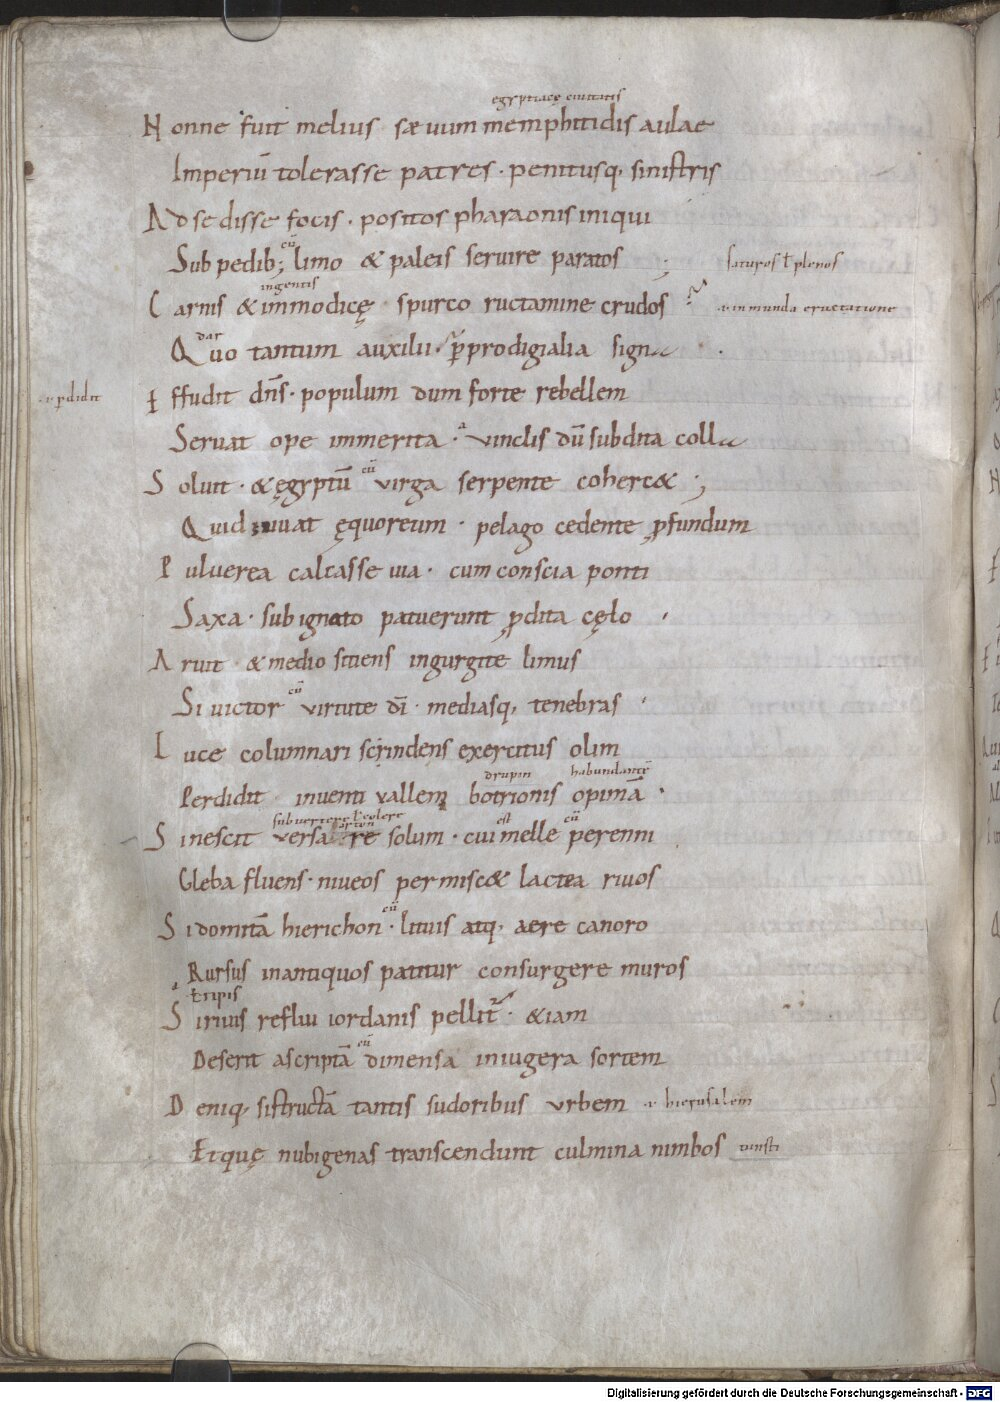 egyptiacę ciuitatis
Nonne fuit melius sæuum memphitidis aulae
Imperiū tolerasse patres · penitusq, sinistris
Adsedisse focis · positos pharaonis iniqui
cū
Sub pedib; limo & paleis seruire paratos ; saturos ł plenos
ingentis
Carnis & immodicę spurco ructamine crudos inmunda eructatione
dar
Quo tantum auxilii · p prodigialia signa
Effudit dn̄s · populum dum forte rebellem
pdidit
Seruat ope immerita · vinclis dū subdita colla
cū
Soluit · & ęgyptū virga serpente coherc& ;
Quid iuuat ęquoreum · pelago cedente pfundum
Puluerea calcasse uia · cum conscia ponti
Saxa · sub ignoto patuerunt pdita cęlo ·
Aruit · & medio sitiens ingurgite limus
cū
Si uictor virtute dī · mediasq, tenebras
Luce columnari scindens exercitus olim
habundantē
Perdidit inuenti vallem botrionis opimā ·
subuertere ł colere est cū
Si nescit versare solum · cui melle perenni
Gleba fluens · niueos permisc& lactea riuos
cū
Si domitā hierichon · lituis atq, aere canoro
Rursus in antiquos patitur consurgere muros
ł ripis
Si riuis reflui iordanis pellit · & iam
cū
Deserit ascriptā dimensa in iugera sortem
Deniq, si structā tantis sudoribus vrbem hierusalem
Et quę nubigenas transcendunt culmina nimbos
Digitalisierung gefördert durch die Deutsche Forschungsgemeinschaft - DFG